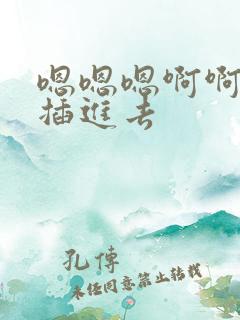 嗯嗯嗯啊啊
插进去
孔传
未经同意禁止转载